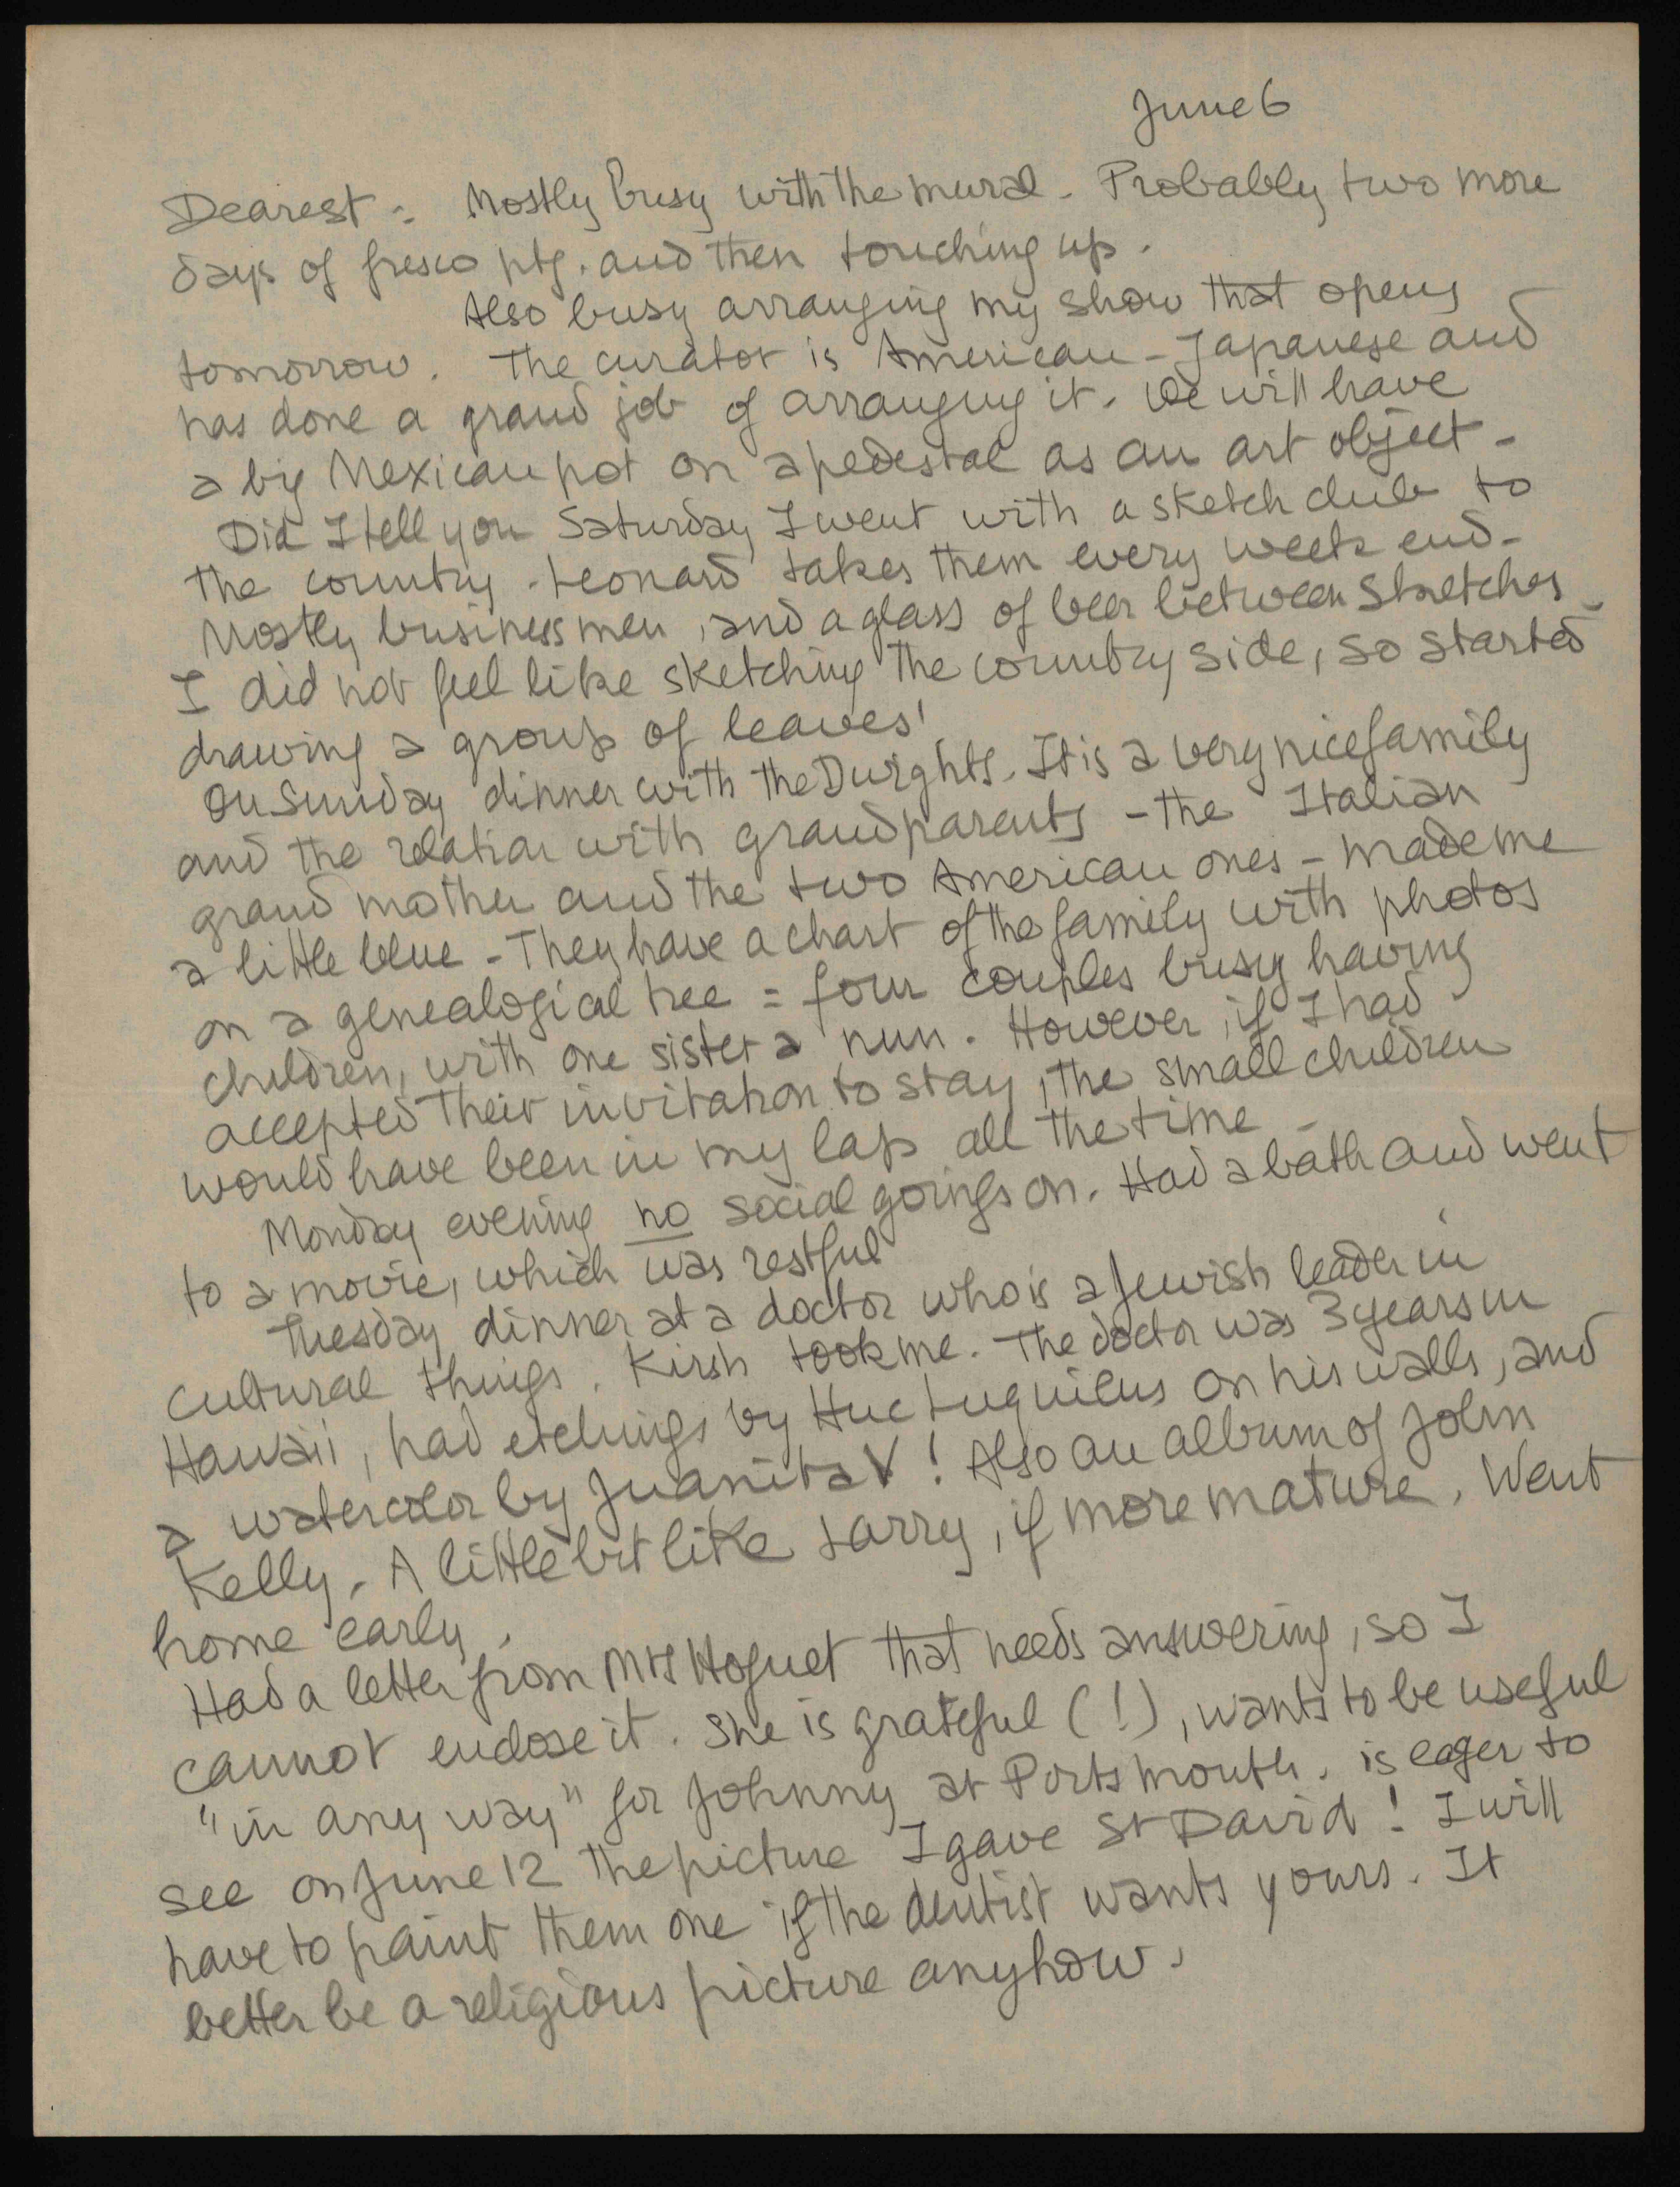 June 6
Dearest : Mostly busy with the mural. Probably two more
days of fresco ptg. and then touching up.
Also busy arranging my show that opens
tomorrow. The curator is American-Japanese and
has done a grand job of arranging it. We will have
a big Mexican pot on a pedestal as an art object -
Did I tell you Saturday I went with a sketch club to
the country. Leonard takes them every week end -
Mostly business men, and a glass of beer between sketches -
I did not feel like sketching the country side, so started
drawing a group of leaves!
On Sunday dinner with the Dwights. It is a very nice family
and the relation with grandparents - the Italian
grand mother and the two American ones - made me
a little blue - They have a chart of the family with photos
on a genealogical tree = four couples busy having
children, with one sister a nun. However, if I had
accepted their invitation to stay, the small children
would have been in my lap all the time -
Monday evening no social goings on. Had a bath and went
to a movie, which was restful
Tuesday dinner at a doctor who is a Jewish leader in
cultural things. Kirsh took me. The doctor was 3 years in
Hawaii, had etchings by Huc Luquiens on his walls, and
a watercolor by Juanita V! Also an album of John
Kelly. A little bit like Larry, if more mature. Went
home early.
Had a letter from Mrs Hoguet that needs answering, so I
cannot enclose it. She is grateful (!), wants to be useful
"in any way" for Johnny at Portsmouth. is eager to
see on June 12 the picture I gave St David! I will
have to paint them one if the dentist wants yours. It
better be a religious picture anyhow.